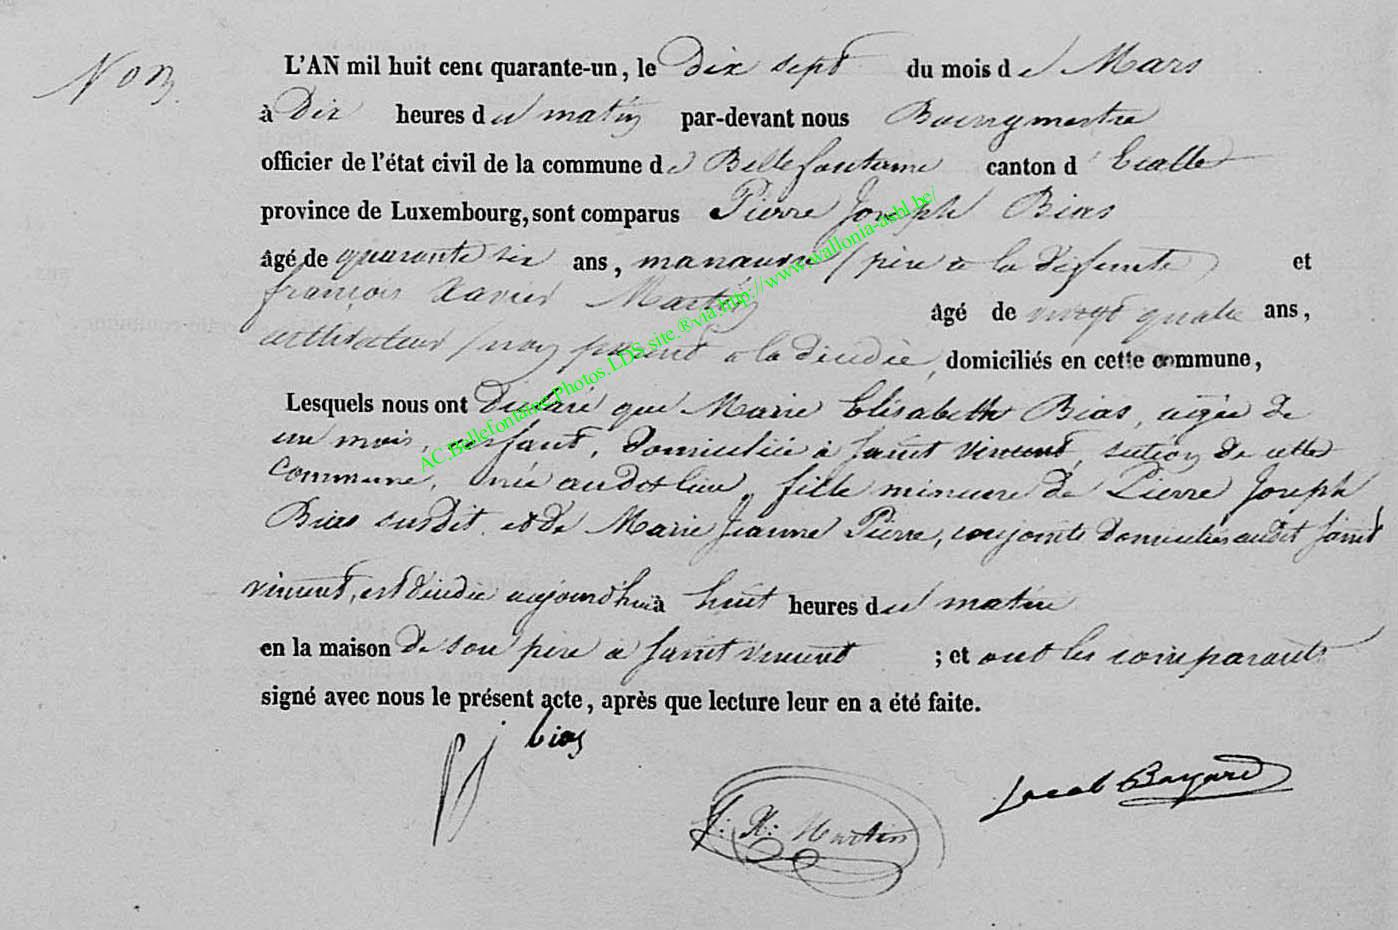 Non
L'AN mil huit cent quarante-un, le dix sept du mois de Mars
à Dix heures du matin par-devant nous Bourgmestre
officier de l'état civil de la commune de Bellefontaine canton d'Etalle
province de Luxembourg, sont comparus Pierre Joseph Bias
âgé de quarante six ans, manœuvre, père à la défunte et
françois Xavier Martin âgé de vingt quatre ans,
cultivateur, non parent à la décédée, domiciliés en cette commune,
Lesquels nous ont déclaré que Marie Elisabeth Bias, agée de
un mois, enfant, domiciliée à saint vincent, section de cette
commune, née audit lieu, fille mineure de Pierre Joseph
Bias susdit et de Marie Jeanne Pierre, conjoints domiciliés audit saint
vincent, est décédée aujourd'hui à huit heures du matin
en la maison de son père à saint vincent ; et ont les comparants
signé avec nous le présent acte, après que lecture leur en a été faite.
pj bias
f: X: Martin
Jacob Bayard
AC.Bellefontaine.Photos.LDS.site.®via.http://www.wallonia-asbl.be/